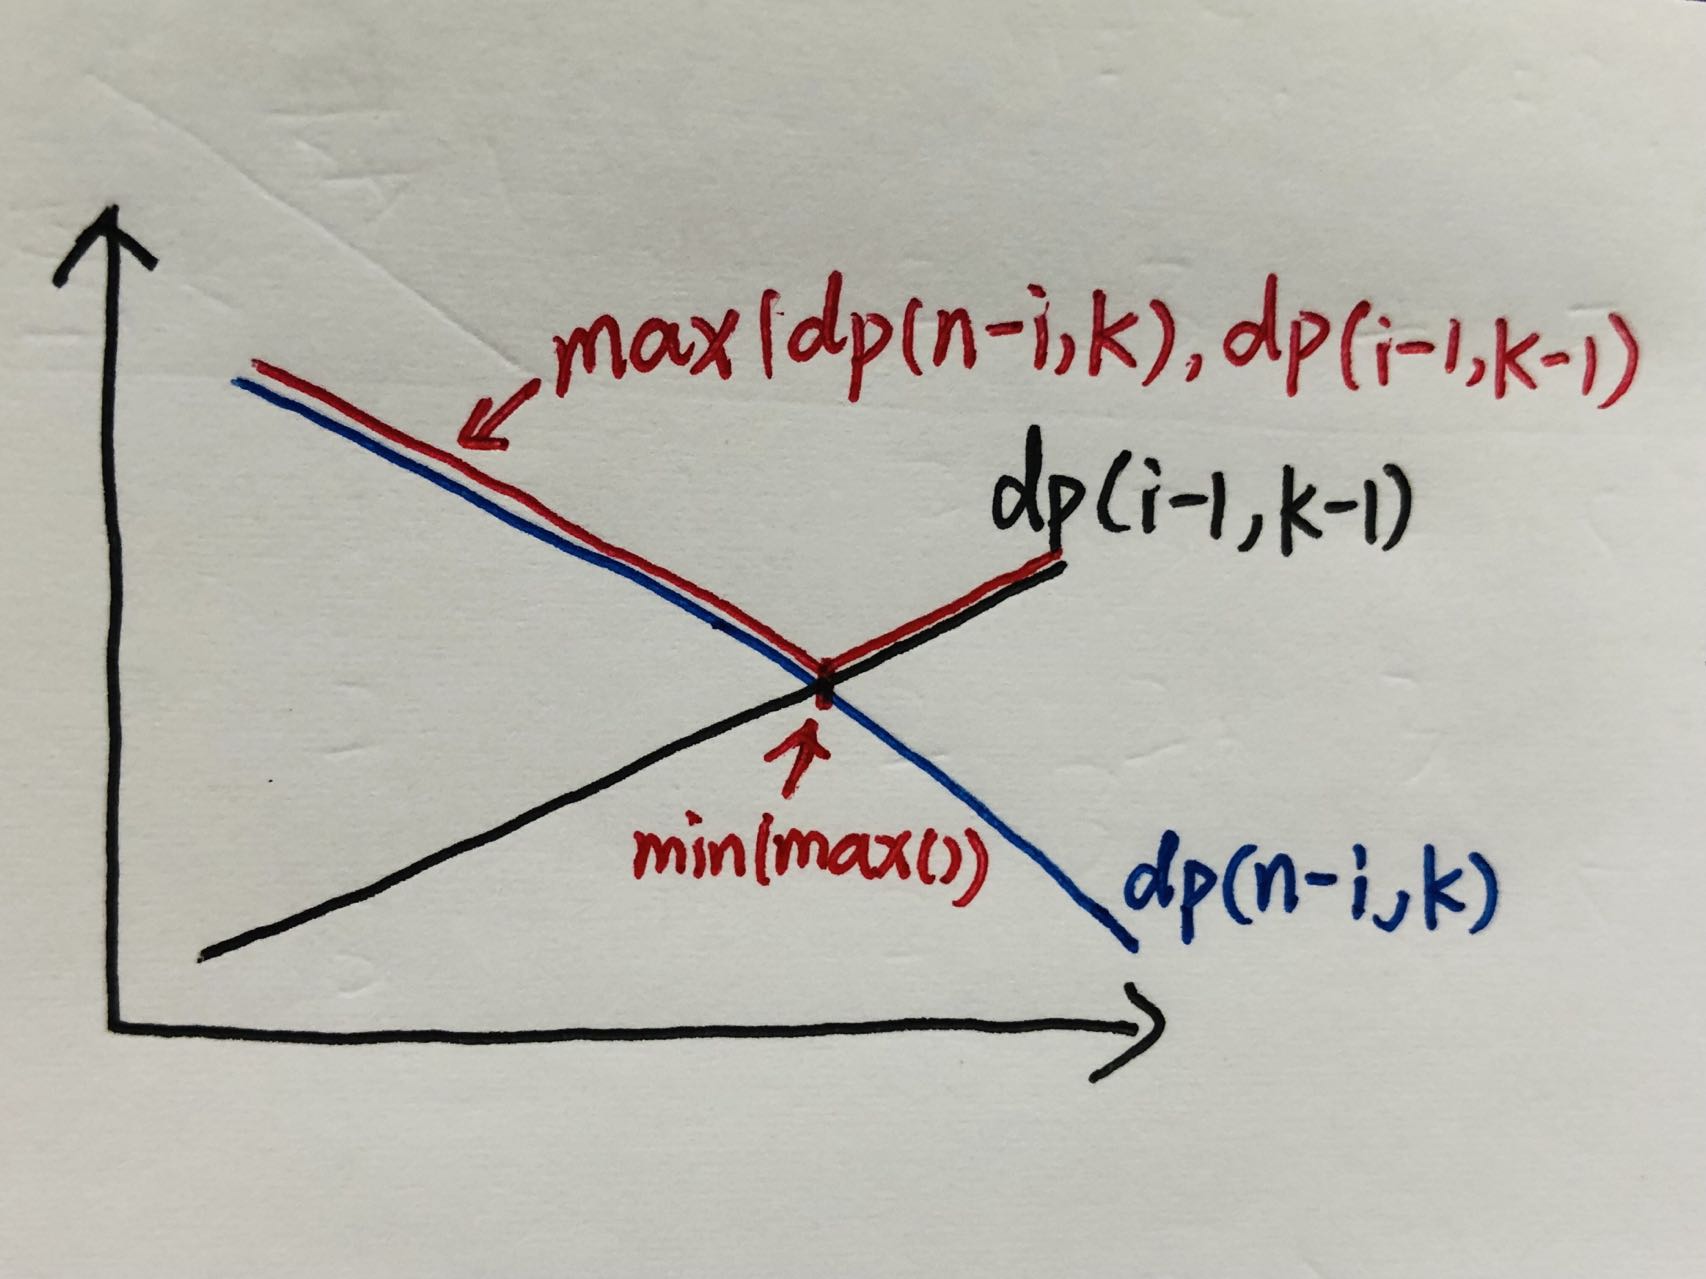 max(dp(n-i,k),dp(i-1,k-1)
dp(i-1,k-1)
min(max())
dp(n-i,k)